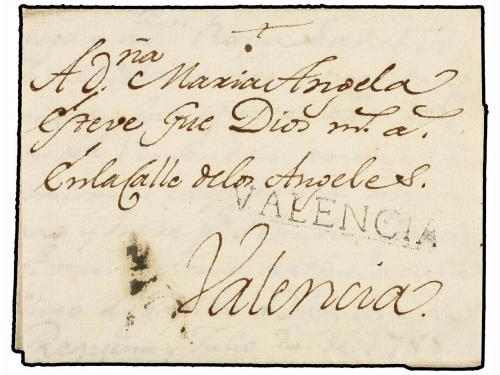 A D.ña Maria Angela
Esteve Gue Dios m.s a.s
En la Calle de los Angeles.
VALENCIA
Valencia.